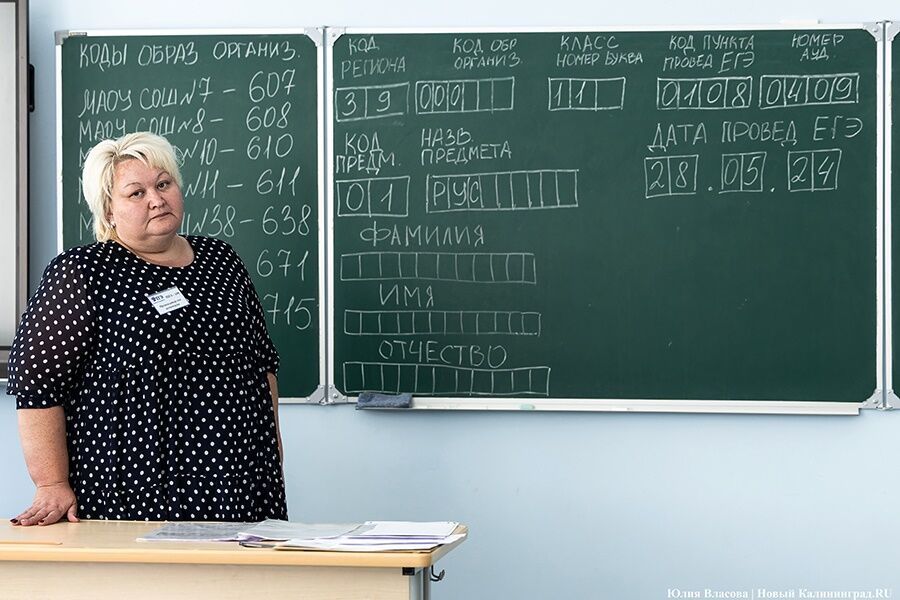 КОДЫ ОБРАЗ ОРГАНИЗ.
МАОУ СОШ №7 - 607
МАОУ СОШ №8 - 608
№10 - 610
№11 - 611
№38 - 638
671
715
КОД РЕГИОНА
39
КОД ОБР ОРГАНИЗ.
000
КЛАСС НОМЕР БУКВА
11
КОД ПУНКТА ПРОВЕД ЕГЭ
0108
НОМЕР АУД.
0409
КОД ПРЕДМ.
01
НАЗВ ПРЕДМЕТА
РУС
ДАТА ПРОВЕД ЕГЭ
28.05.24
ФАМИЛИЯ
ИМЯ
ОТЧЕСТВО
Юлия Власова | Новый Калининград.RU